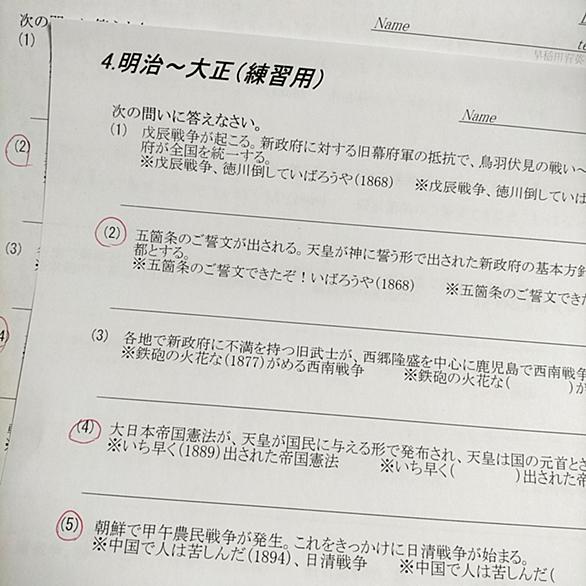 次の
Name
(1)
(2)
(3)
4)
早稲田育英
4.明治～大正(練習用)
Name
次の問いに答えなさい。
(1) 戊辰戦争が起こる。新政府に対する旧幕府軍の抵抗で、鳥羽伏見の戦い～
府が全国を統一する。
※戊辰戦争、徳川倒していばろうや(1868) ※戊辰戦争、徳川倒していば
(2) 五箇条のご誓文が出される。天皇が神に誓う形で出された新政府の基本方針
都とする。
※五箇条のご誓文できたぞ！いばろうや(1868) ※五箇条のご誓文できた
(3) 各地で新政府に不満を持つ旧武士が、西郷隆盛を中心に鹿児島で西南戦争
※鉄砲の火花な(1877)がめる西南戦争 ※鉄砲の火花な( )が
(4) 大日本帝国憲法が、天皇が国民に与える形で発布され、天皇は国の元首とさ
※いち早く(1889)出された帝国憲法 ※いち早く( )出された帝
(5) 朝鮮で甲午農民戦争が発生。これをきっかけに日清戦争が始まる。
※中国で人は苦しんだ(1894)、日清戦争 ※中国で人は苦しんだ(